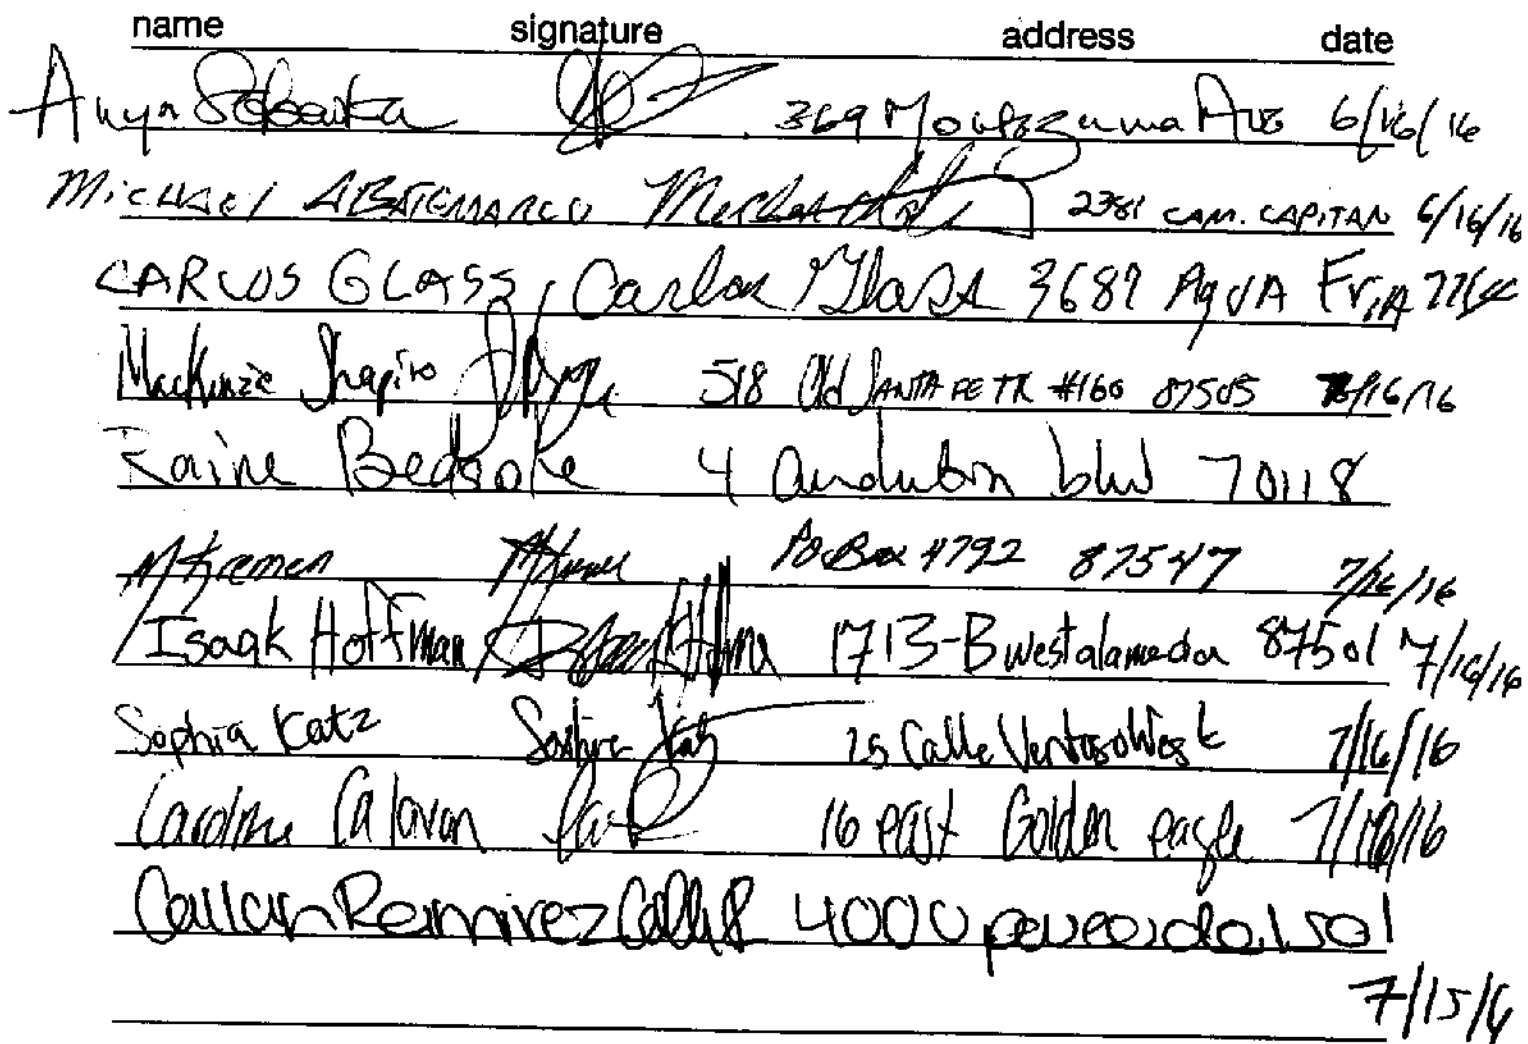 name signature address date
Anya Sebastia 369 Montezuma Ave 6/16/16
Michael Abatemarco 2381 CAM. CAPITAN 6/16/16
CARLOS GLASS Carlos Glass 3687 AguA FriA
Mackenzie Shapiro 518 Old SANTA FE TR #160 87505 /16/16
Raine Bedsole 4 audubon blvd 70118
M Kremen PO Box 4792 87547 7/16/16
Isaak Hoffman 1713-B west alameda 87501 7/16/16
Sophia Katz Sophia Katz 25 Calle Ventoso West 7/16/16
Caroline Calavan 16 east Golden eagle 7/16/16
Callan Ramirez 4000 paseo del sol
7/15/6